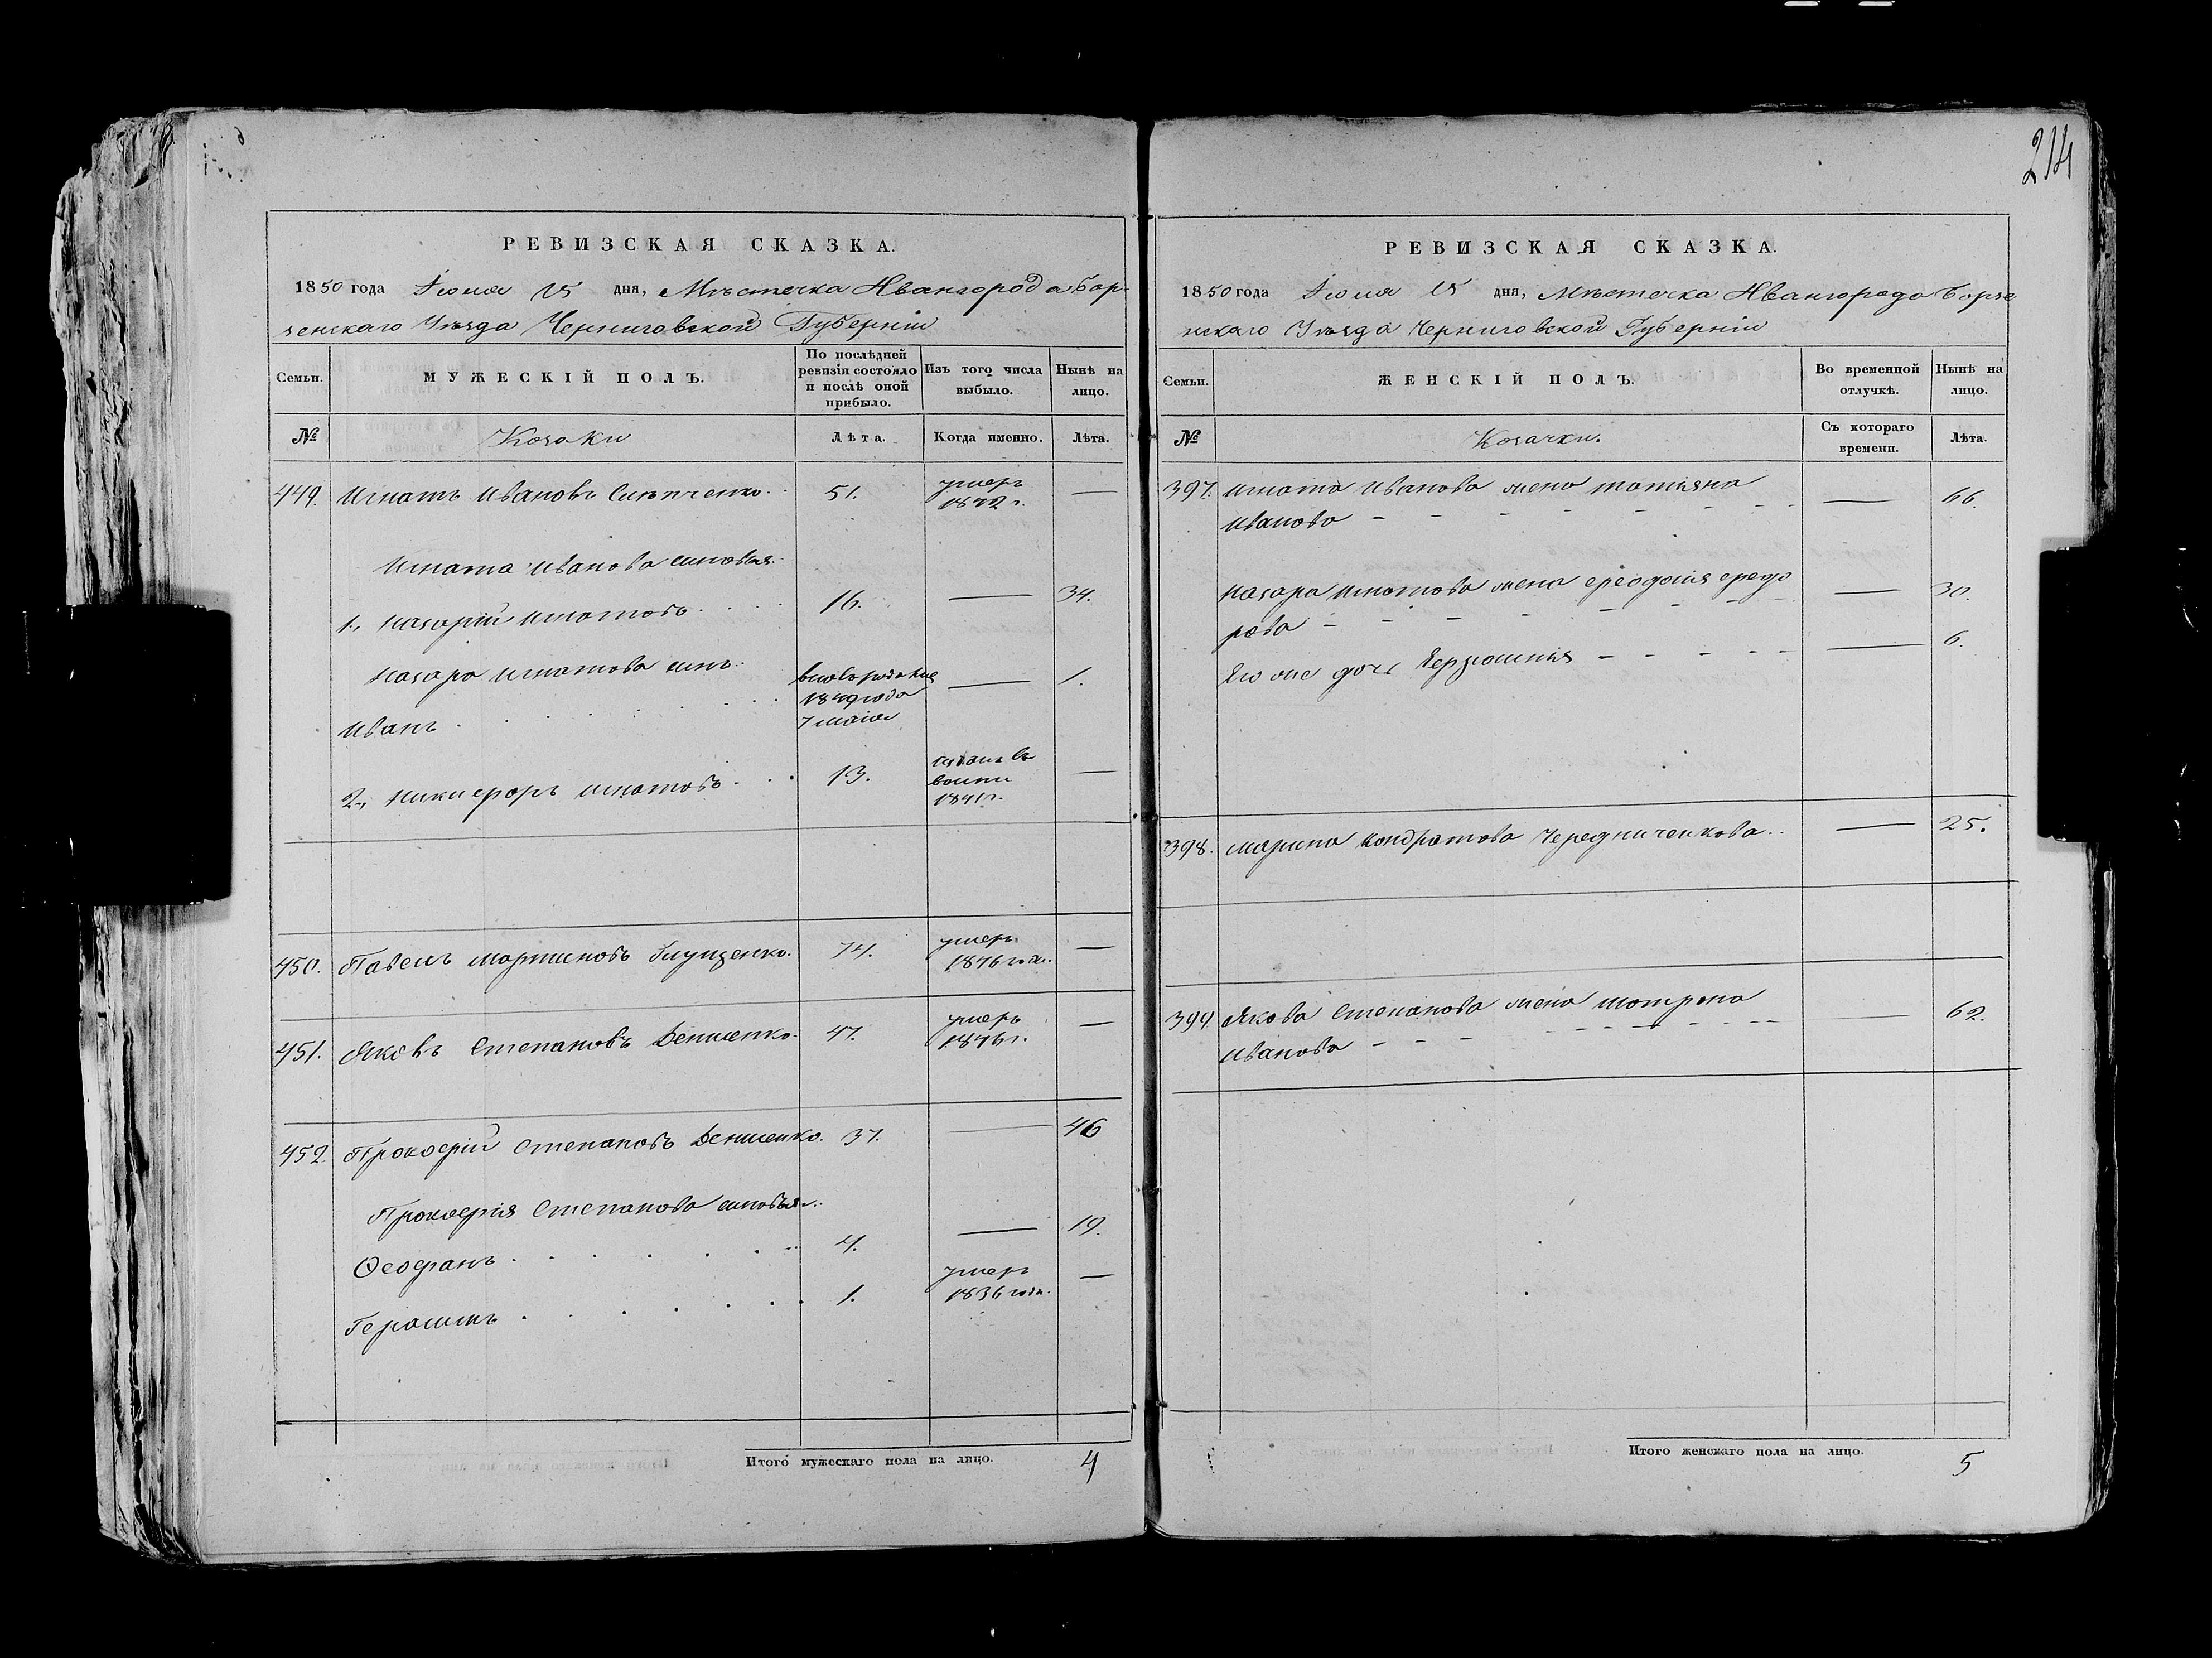 214
РЕВИЗСКАЯ СКАЗКА.
1850 года Іюля 15 дня, Мѣстечка Ивангорода Бор-
зенскаго Уѣзда Черниговской Губерніи
Семьи.
МУЖЕСКІЙ ПОЛЪ.
По послѣдней ревизіи состояло и послѣ оной прибыло.
Изъ того числа выбыло.
Нынѣ на лицо.
№
Козаки
Лѣта.
Когда именно.
Лѣта.
449. Игнатъ Ивановъ 51. умеръ 1842 г. —
Игната Иванова сыновья
1., Назарій Игнатовъ 16. — 34.
Назара Игнатова сынъ
Иванъ вновь рожден 1849 года 7 маія — 1.
2., Никифоръ Игнатовъ 13. 1841 г. —
450. Павелъ Мартиновъ Глущенко. 74. умеръ 1846 года. —
451. Яковъ Степановъ Денисенко. 47. умеръ 1846 г. —
452. Прокофій Степановъ Денисенко. 37. — 46
Прокофія Степанова сыновья
Ѳеофанъ 4. — 19.
Герасимъ 1. умеръ 1836 года. —
Итого мужескаго пола на лицо. 4
РЕВИЗСКАЯ СКАЗКА.
1850 года Іюля 15 дня, Мѣстечка Ивангорода Борзе
нскаго Уѣзда Черниговской Губерніи
Семьи.
ЖЕНСКІЙ ПОЛЪ.
Во временной отлучкѣ.
Нынѣ на лицо.
№
Козачки.
Съ котораго времени.
Лѣта.
397. Игната Иванова жена Татіяна
Иванова — 66.
Назара Игнатова жена Феодосія Федо
рова — 30.
Его же дочь — 6.
398. Марина Кондратова Чередниченкова — 25.
399 Якова Степанова жена Мотрона
Иванова — 62.
Итого женскаго пола на лицо. 5